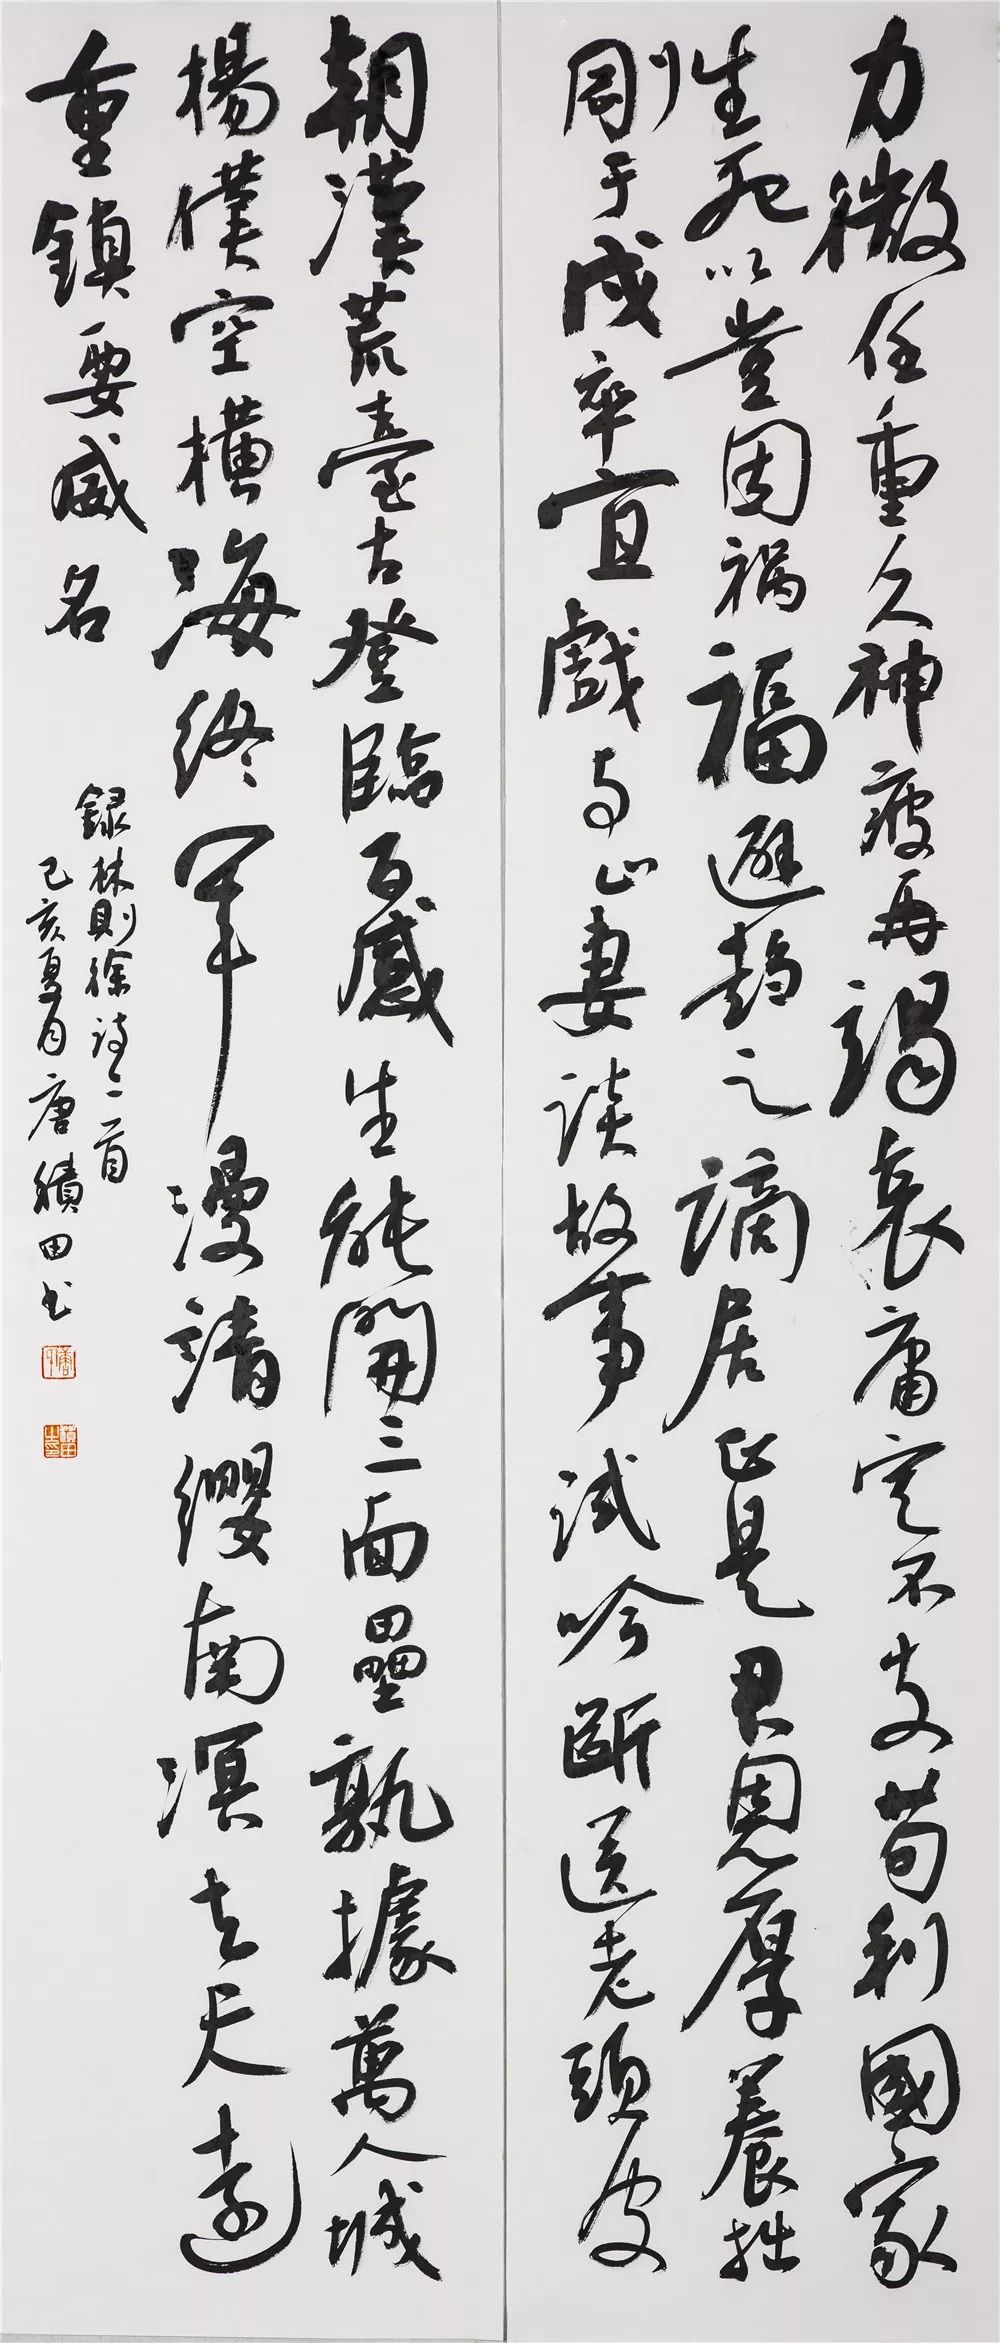 力微任重久神疲再竭衰庸定不支苟利國家
生死以豈因禍福避趨之謫居正是君恩厚養拙
剛于戍卒宜戲与山妻談故事試吟斷送老頭皮
朝漢荒臺古登臨百感生能開三面壘孰據萬人城
楊僕空橫海終軍漫請纓南溟去天遠
重鎮要威名
錄林則徐詩二首
己亥夏月唐積田书